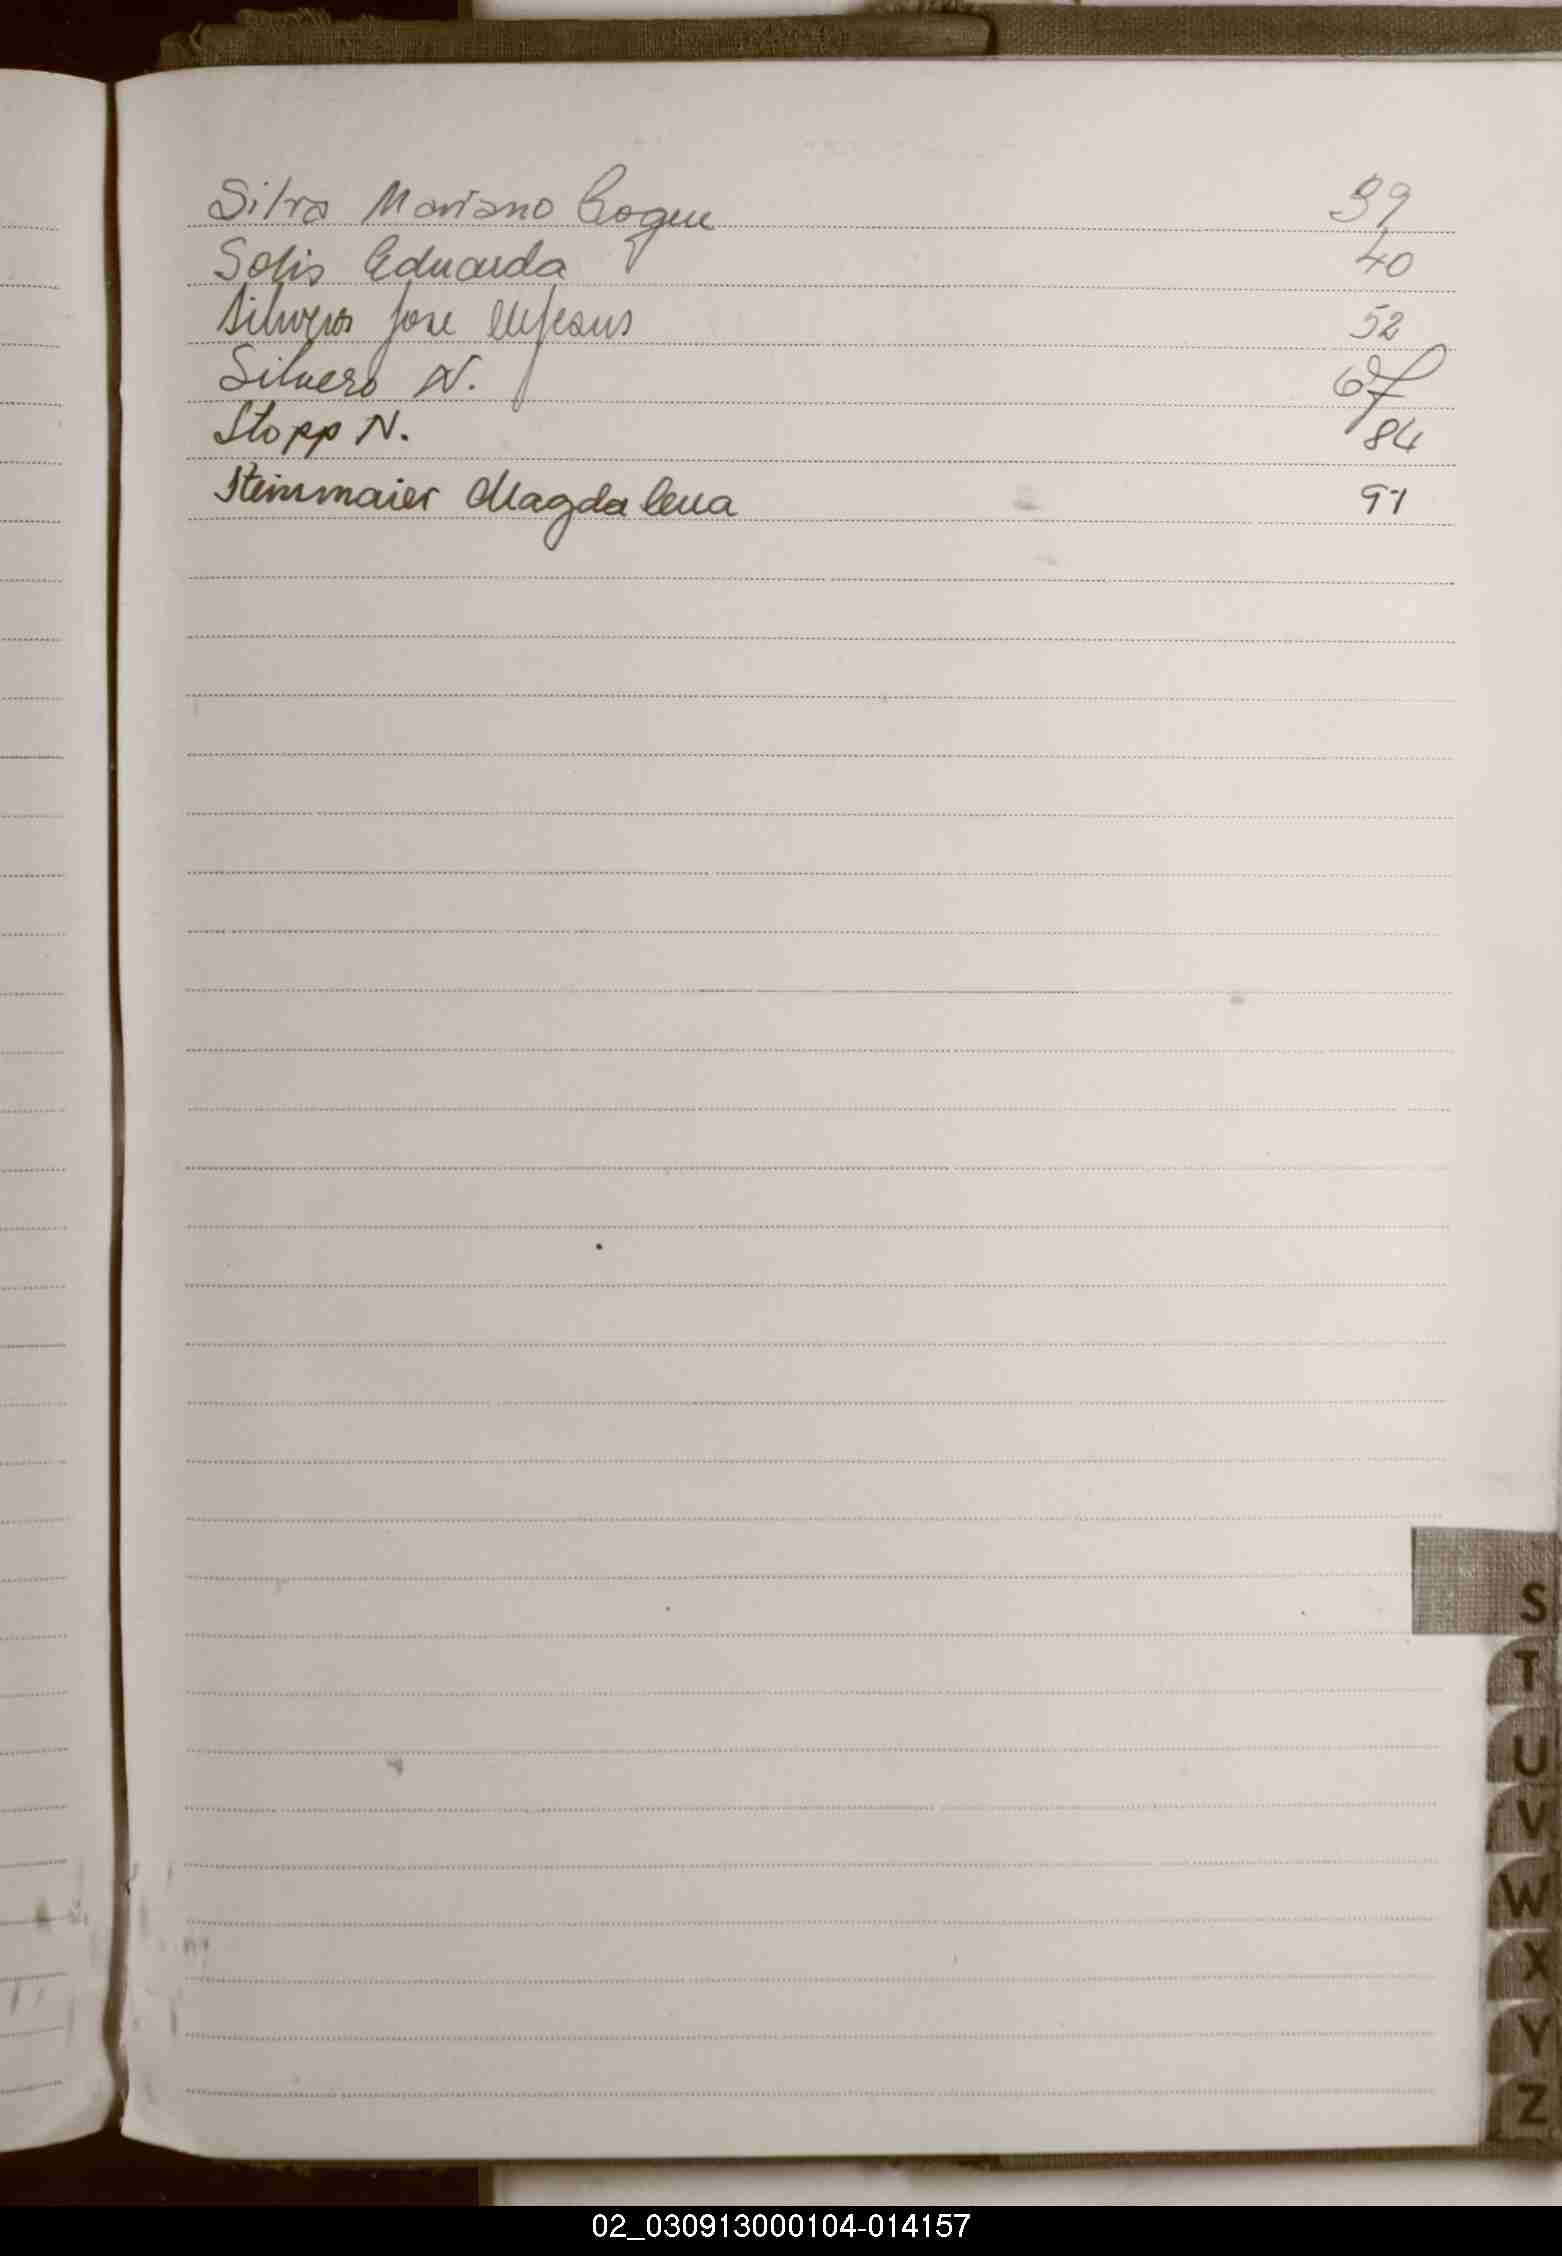 Silva Mariano Roque 39
Solis Eduarda 40
Silvero Jose 52
Silvero N. 67
Stopp N. 84
Steinmaier Magdalena 91
S
T
U
V
W
X
Y
Z
02_030913000104-014157